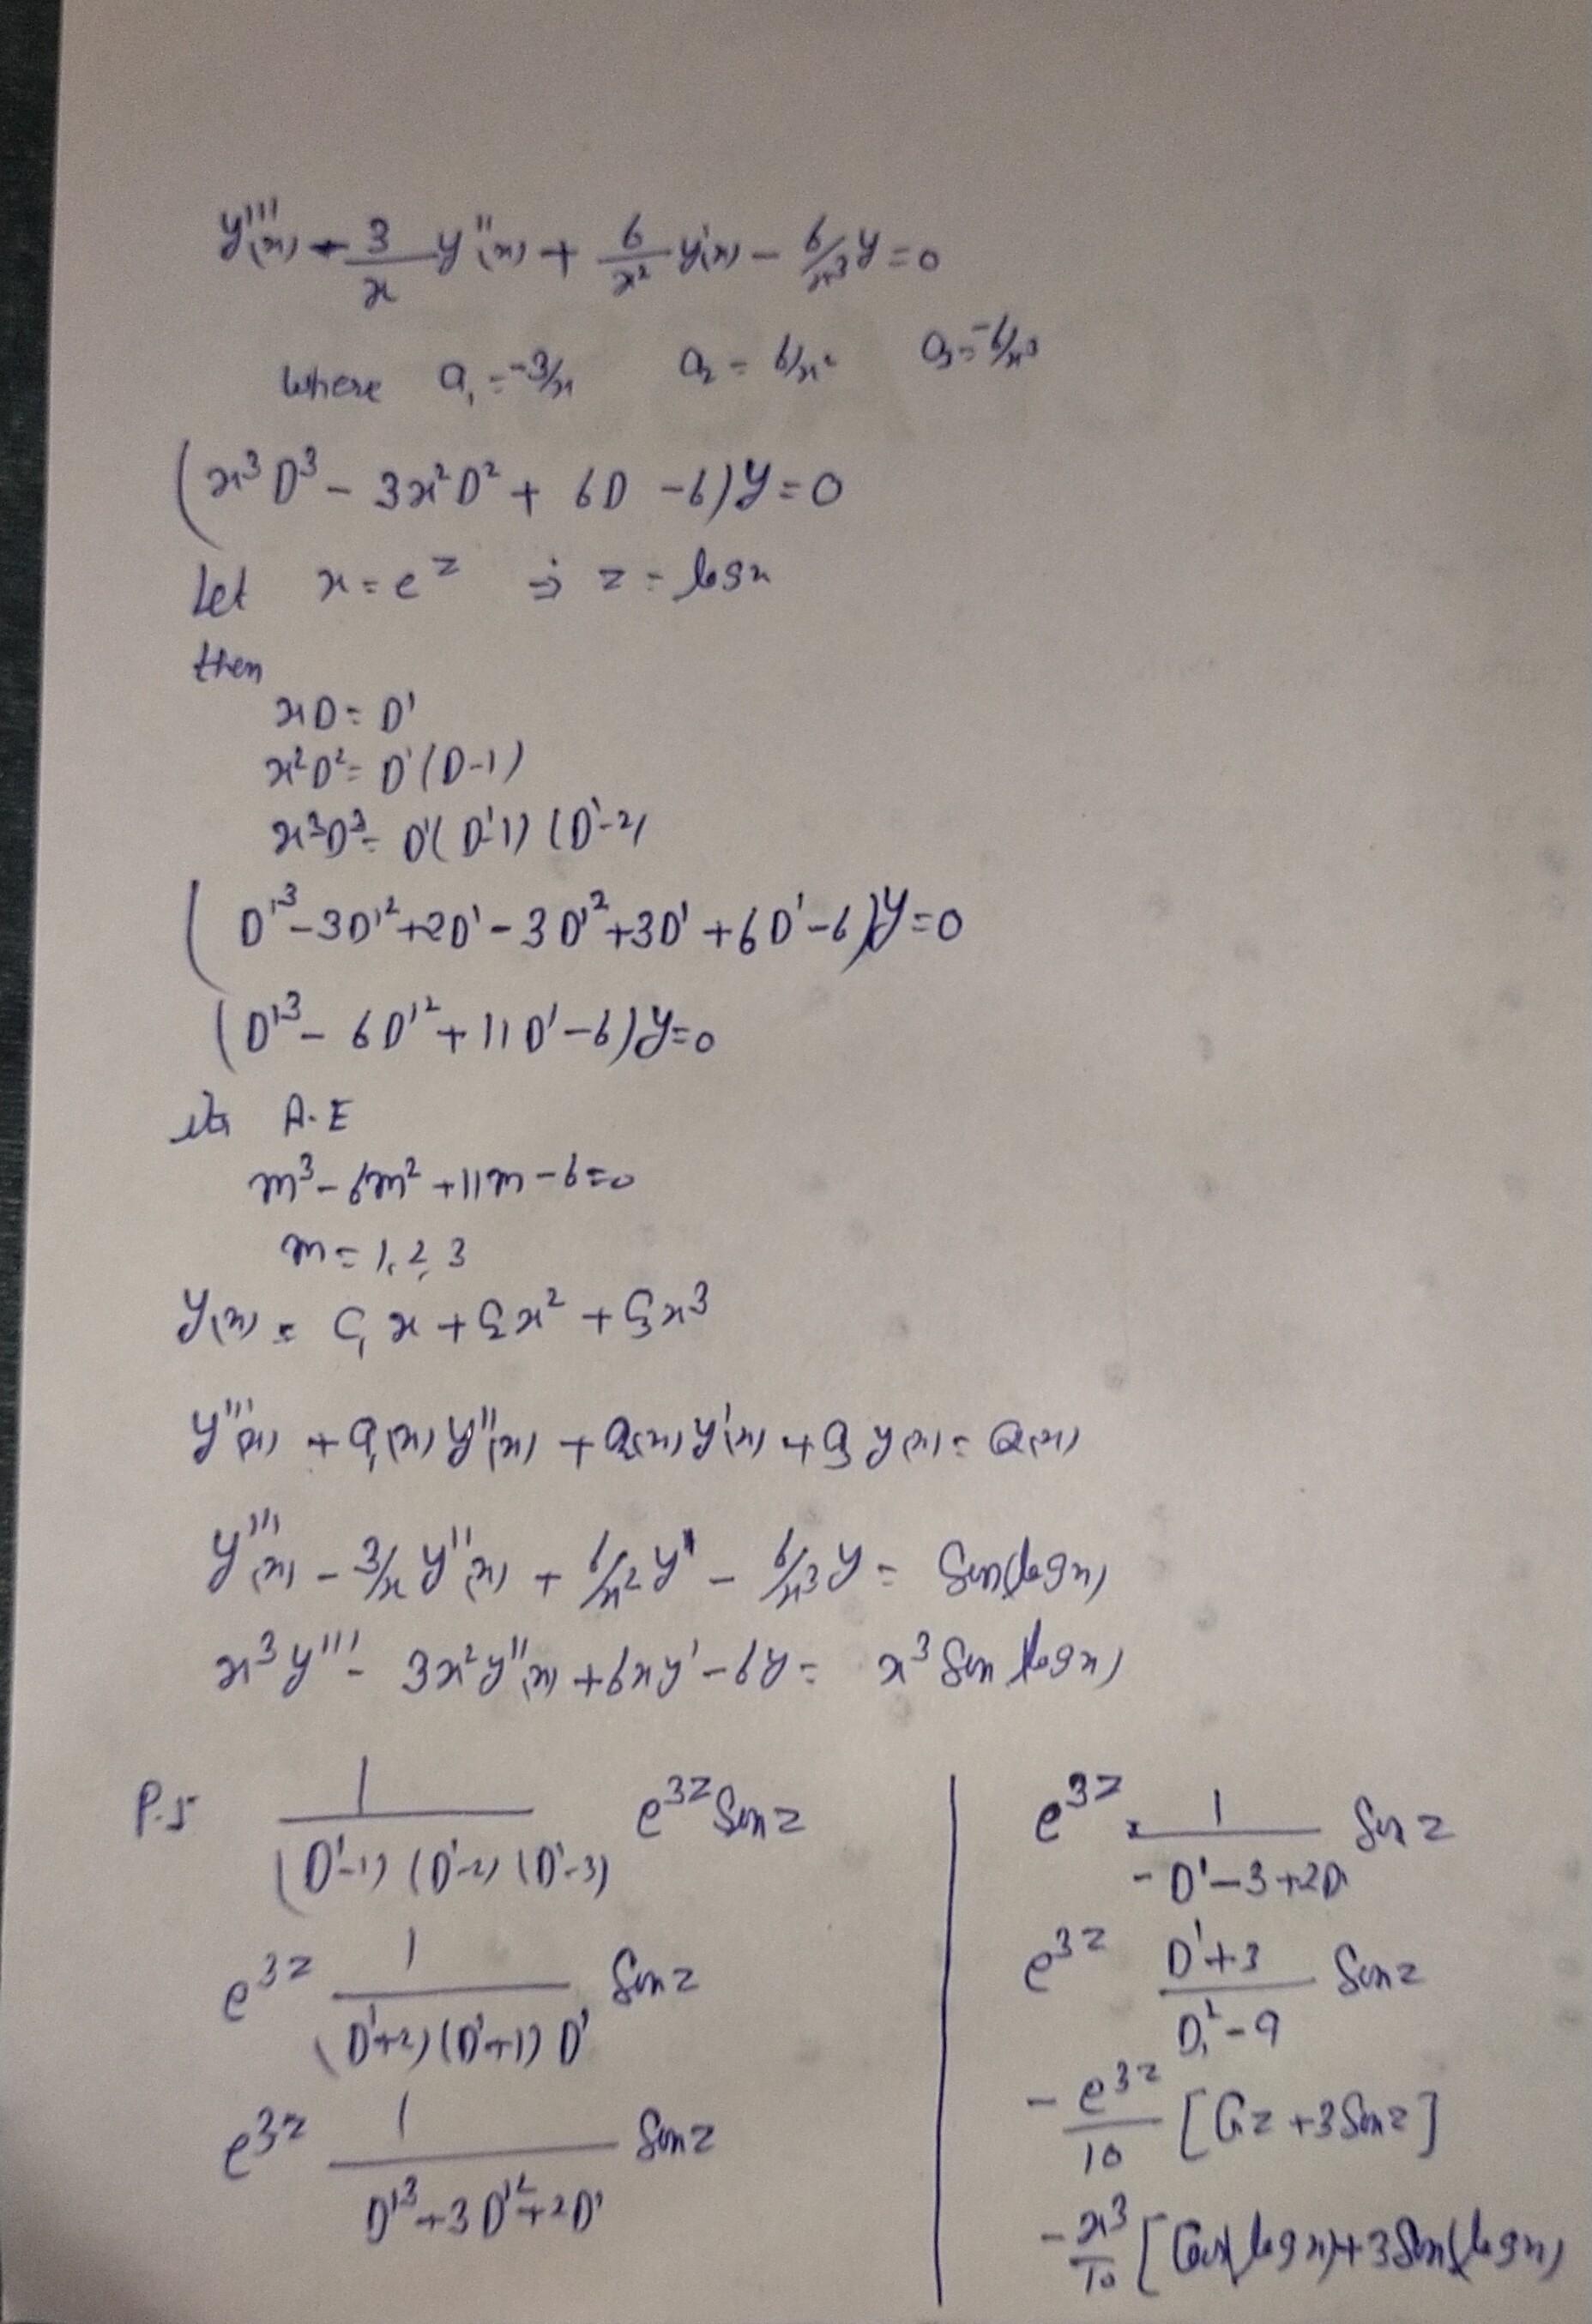 y'''(x) - 3/x y''(x) + 6/x² y'(x) - 6/x³ y = 0
where a₁ = -3/x a₂ = 6/x² a₃ = -6/x³
(x³D³ - 3x²D² + 6D - 6)y = 0
Let x = e^z ⇒ z = log x
then
xD = D'
x²D² = D'(D-1)
x³D³ = D'(D'-1)(D'-2)
(D'³ - 3D'² + 2D' - 3D'² + 3D' + 6D' - 6)y = 0
(D'³ - 6D'² + 11D' - 6)y = 0
its A.E
m³ - 6m² + 11m - 6 = 0
m = 1, 2, 3
y(x) = C₁x + C₂x² + C₃x³
y'''(x) + a₁(x) y''(x) + a₂(x) y'(x) + a₃ y(x) = Q(x)
y'''(x) - 3/x y''(x) + 6/x² y' - 6/x³ y = Sin(log x)
x³y''' - 3x²y''(x) + 6xy' - 6y = x³ Sin(log x)
P.I 1/((D'-1)(D'-2)(D'-3)) e^3z Sin z
e^3z 1/((D'+2)(D'+1)D') Sin z
e^3z 1/(D'³ + 3D'² + 2D') Sin z
e^3z × 1/(-D' - 3 + 2D') Sin z
e^3z (D'+3)/(D'² - 9) Sin z
- e^3z/10 [Cos z + 3 Sin z]
- x³/10 [Cos(log x) + 3 Sin(log x)